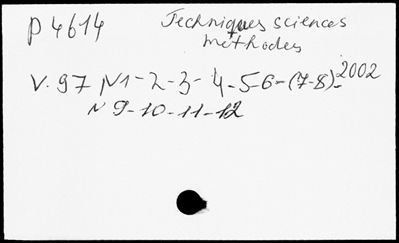 P 4614
Techniques sciences
méthodes
V. 97 N1-2-3-4-5-6-(7-8)-2002
N 9-10-11-12